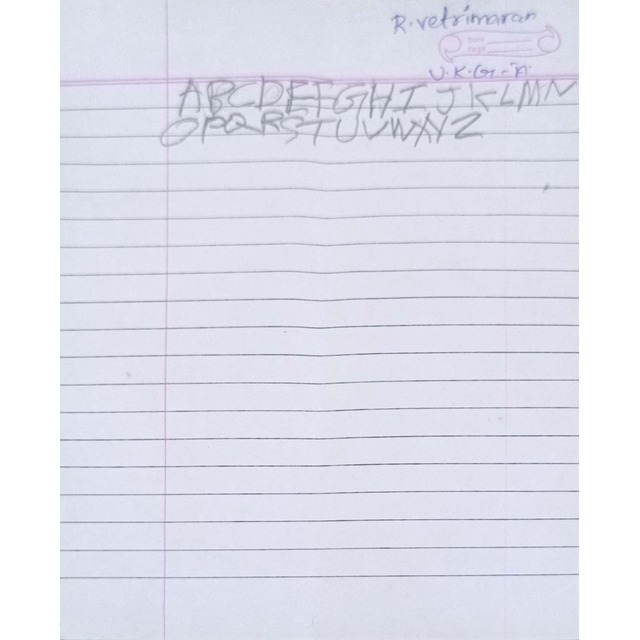 R. vetrimaran
Date
Page
U.K.G-A
ABCDEFGHIJKLMN
OPQRSTUVWXYZ